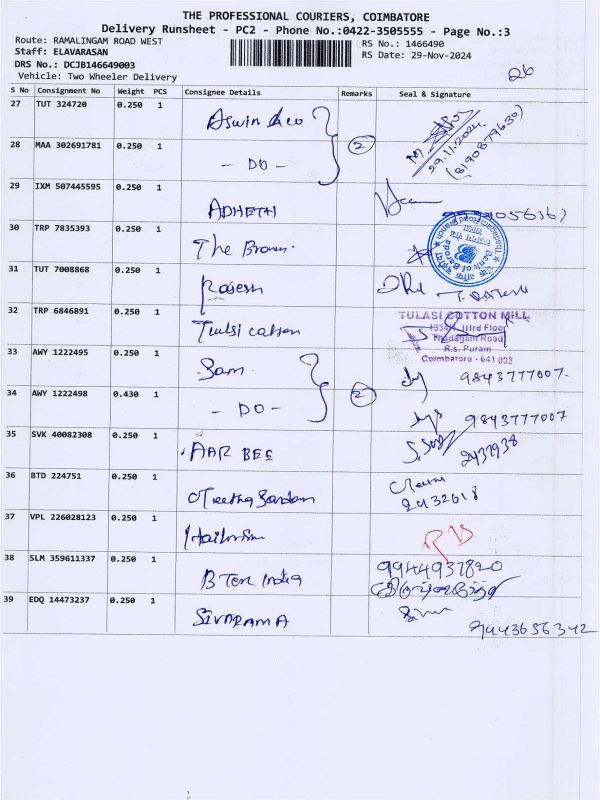 THE PROFESSIONAL COURIERS, COIMBATORE
Delivery Runsheet - PC2 - Phone No.:0422-3505555 - Page No.:3
Route: RAMALINGAM ROAD WEST
RS No.: 1466490
Staff: ELAVARASAN
RS Date: 29-Nov-2024
DRS No.: DCJB146649003
Vehicle: Two Wheeler Delivery
26
S No Consignment No Weight PCS Consignee Details Remarks Seal & Signature
27 TUT 324720 0.250 1 Aswin
29.11.2024
(8190879630)
28 MAA 302691781 0.250 1 - DO - 2
29 IXM 507445595 0.250 1 ADHETH
30 TRP 7835393 0.250 1 The Brown.
Bank of Baroda
31 TUT 7008868 0.250 1
32 TRP 6846891 0.250 1 Tulsi cotton
TULASI COTTON MILL
IIIrd Floor
Road
R.s. Puram
Coimbatore - 641 002
33 AWY 1222495 0.250 1 Sam 9843777007.
34 AWY 1222498 0.430 1 - DO - 2 9843777007
35 SVK 40082308 0.250 1 AAR BEE 2437938
36 BTD 224751 0.250 1
2432618
37 VPL 226028123 0.250 1
38 SLM 359611337 0.250 1 B Tex India 9944937820
39 EDQ 14473237 0.250 1 SIVARAMA
9443656342